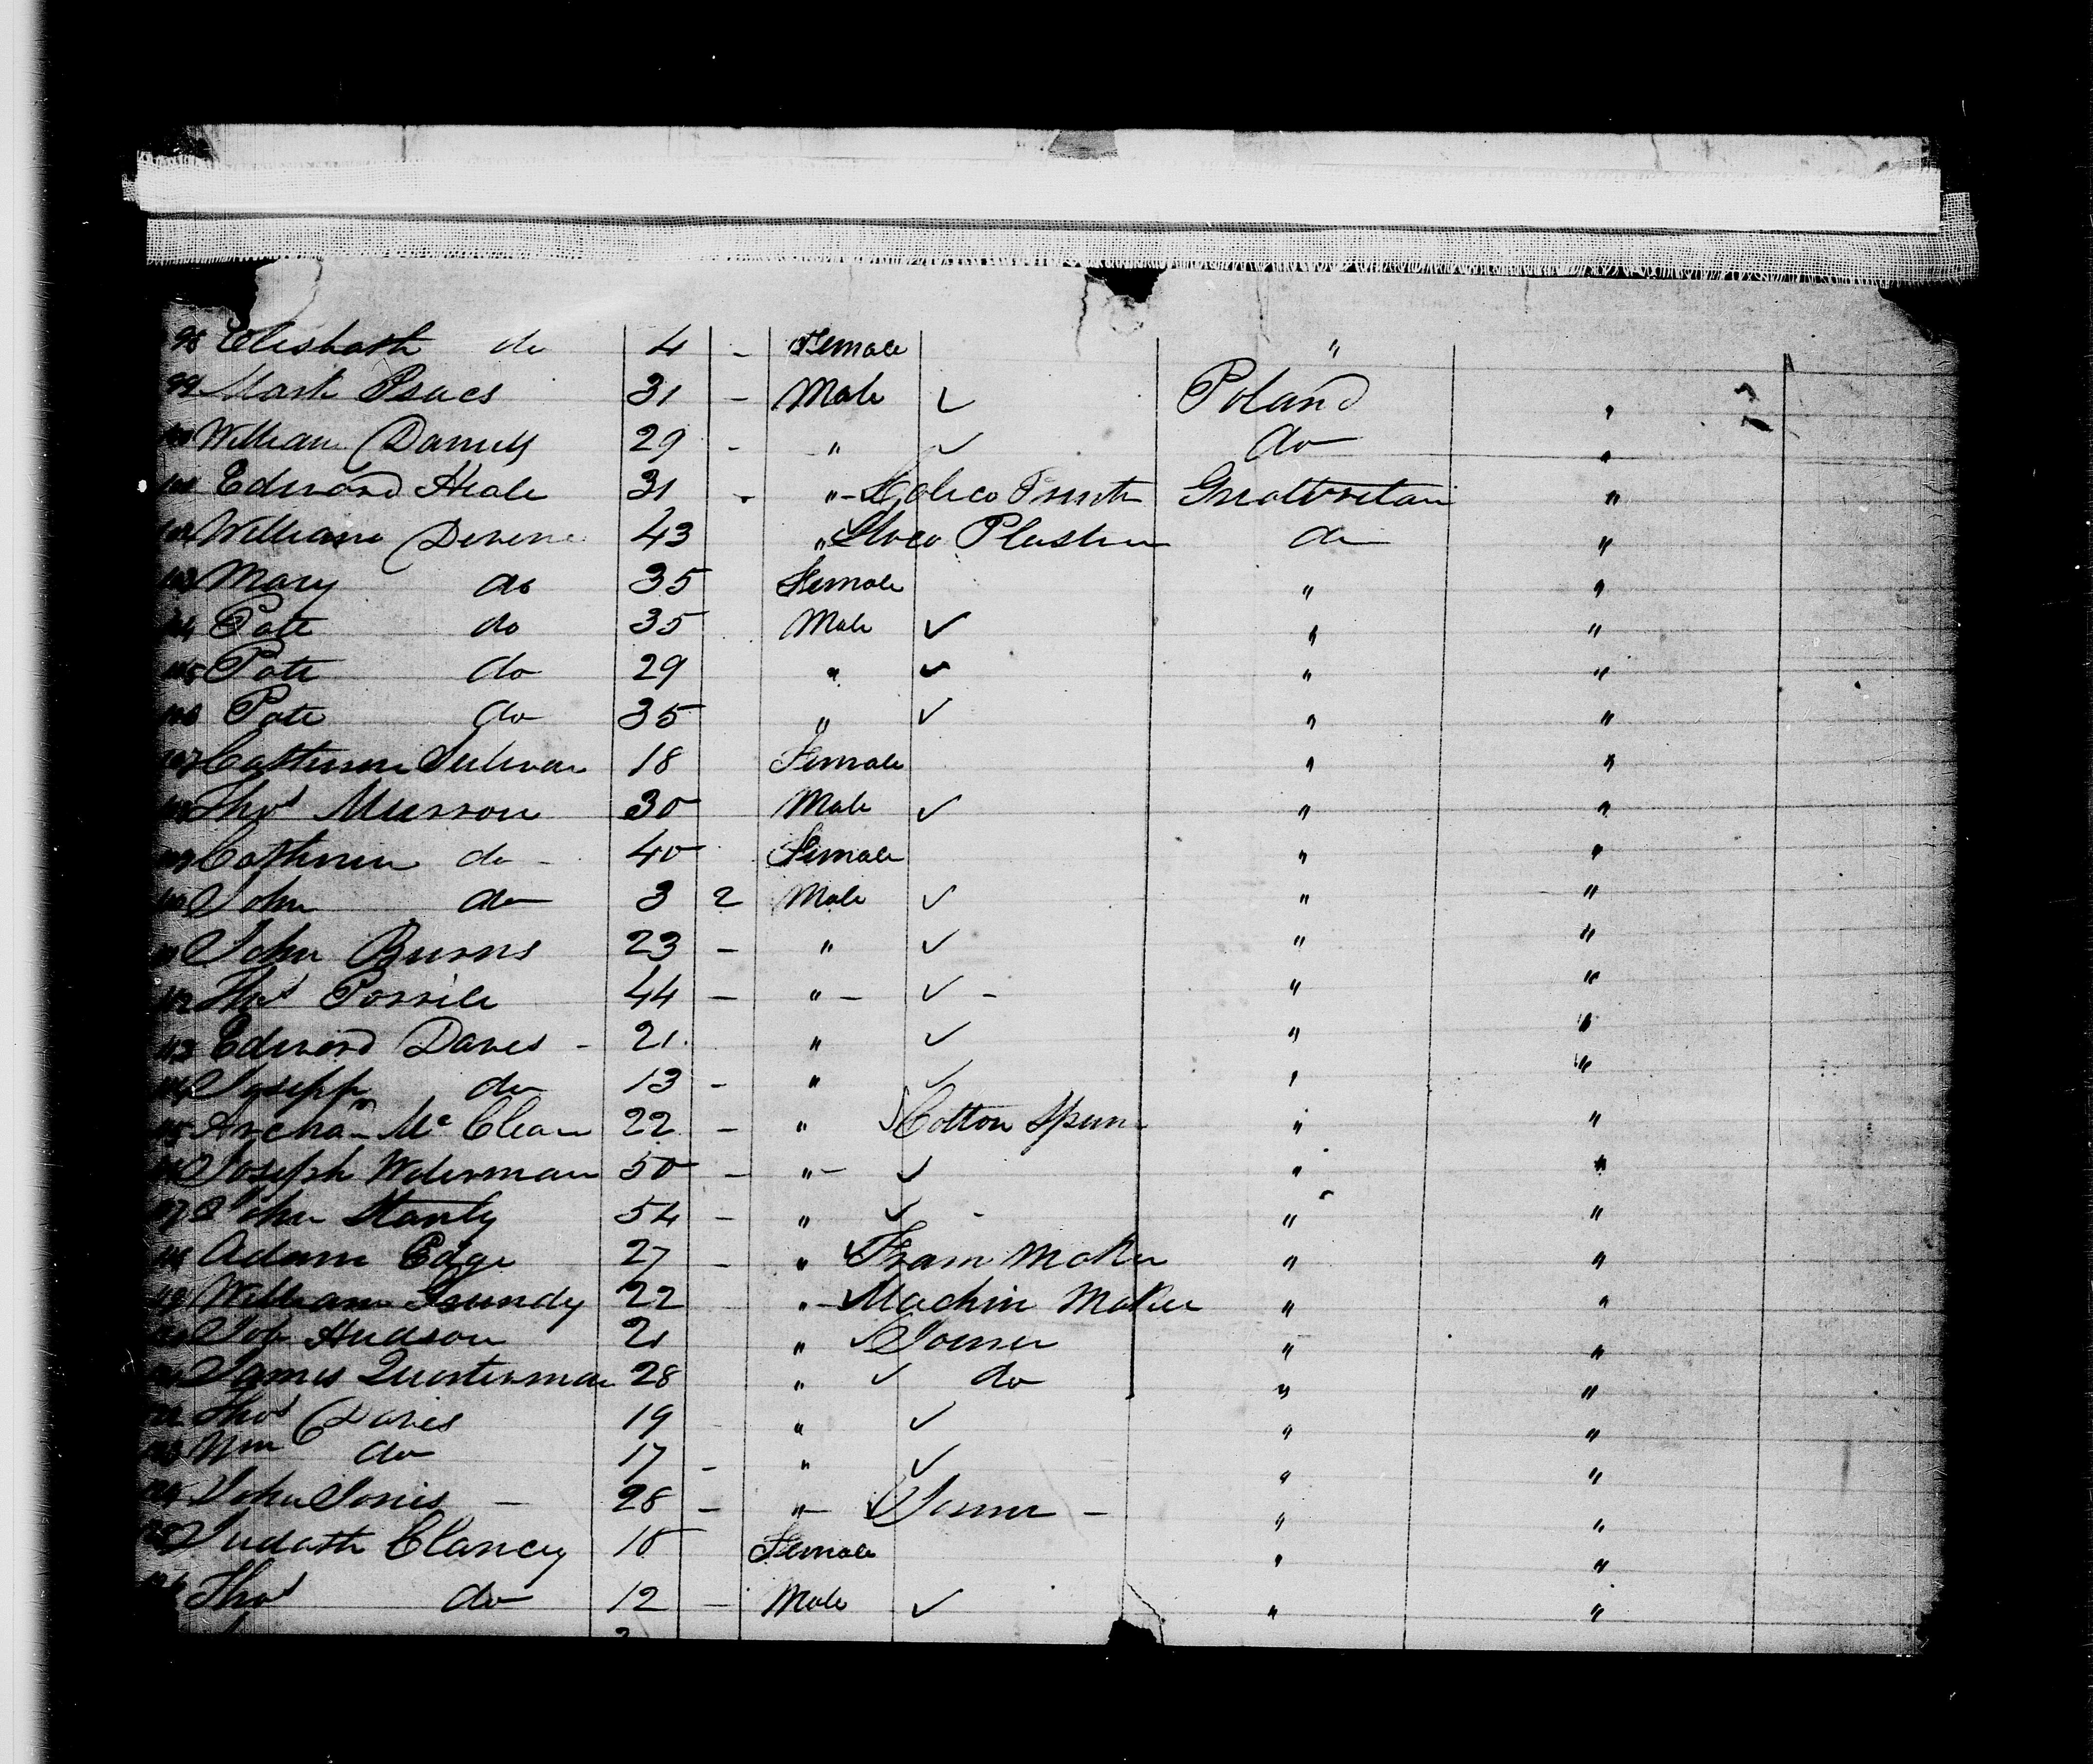 98 Elisbath do 4 - Female "
99 Mark Isacs 31 - Male ✓ Poland "
100 William Daniels 29 - " ✓ do "
101 Edward Heale 31 - " - Calico Printer Greatbritain "
102 William Devene 43 " Stoco Plasterer do "
103 Mary do 35 Female " "
104 Pate do 35 Male ✓ " "
105 Pate do 29 " ✓ " "
106 Pate do 35 " ✓ " "
107 Catherine Sulivan 18 Female " "
108 Thos Murrou 30 Male ✓ " "
109 Catherin do - 40 Female " "
110 John do 3 2 Male ✓ " "
111 John Burns 23 - " ✓ " "
112 Thos 44 - " - ✓ - " "
113 Edward Daves - 21 " ✓ " "
114 Joseph do 13 - " ✓ " "
115 Archam Mc Clean 22 - " ✓ Cotton Spun " "
116 Joseph Waterman 50 - " - ✓ " "
117 John Stanly 54 - " ✓ - " "
118 Adam Edge 27 - " ✓ Fram Maker " "
119 William Grundy 22 " - Machin Maker " "
120 Job Hudson 21 " ✓ Joiner " "
121 James Quarterman 28 " ✓ do " "
122 Thos Davies 19 - " ✓ " "
123 Wm do 17 - " ✓ " "
124 John Jones - 28 - " - ✓ Joiner - " "
125 Judath Clancy 10 Female " "
126 Thos do 12 - Male ✓ " "